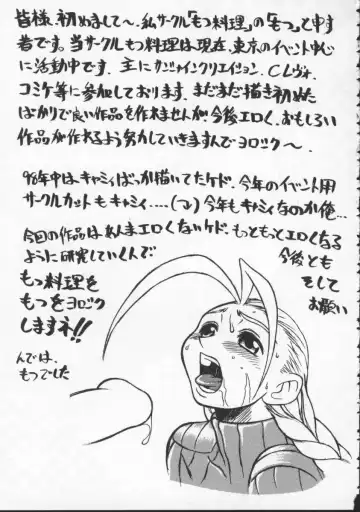 皆様、初めまして〜。私サークル「もつ料理」の「もつ」と申す
者です。当サークルもつ料理は現在、東京のイベント中心
に活動中です。主にサンシャインクリエイション、Cレヴォ、
コミケ等に参加しております。まだまだ描き初めた
ばかりで良い作品を作れませんが今後エロく、おもしろい
作品が作れるよう努力していきますんでヨロシク〜。
96年中はキャミィばっか描いてたケド、今年のイベント用
サークルカットもキャミィ....(フレ)今年もキャミィなのか俺...
今回の作品はあんまエロくないケド、もっともっとエロくなる
ように研究していくんで
今後とも
もつ料理を
そして
もつをヨロシク
お願い
しますネ!!
んでは、
もつでした